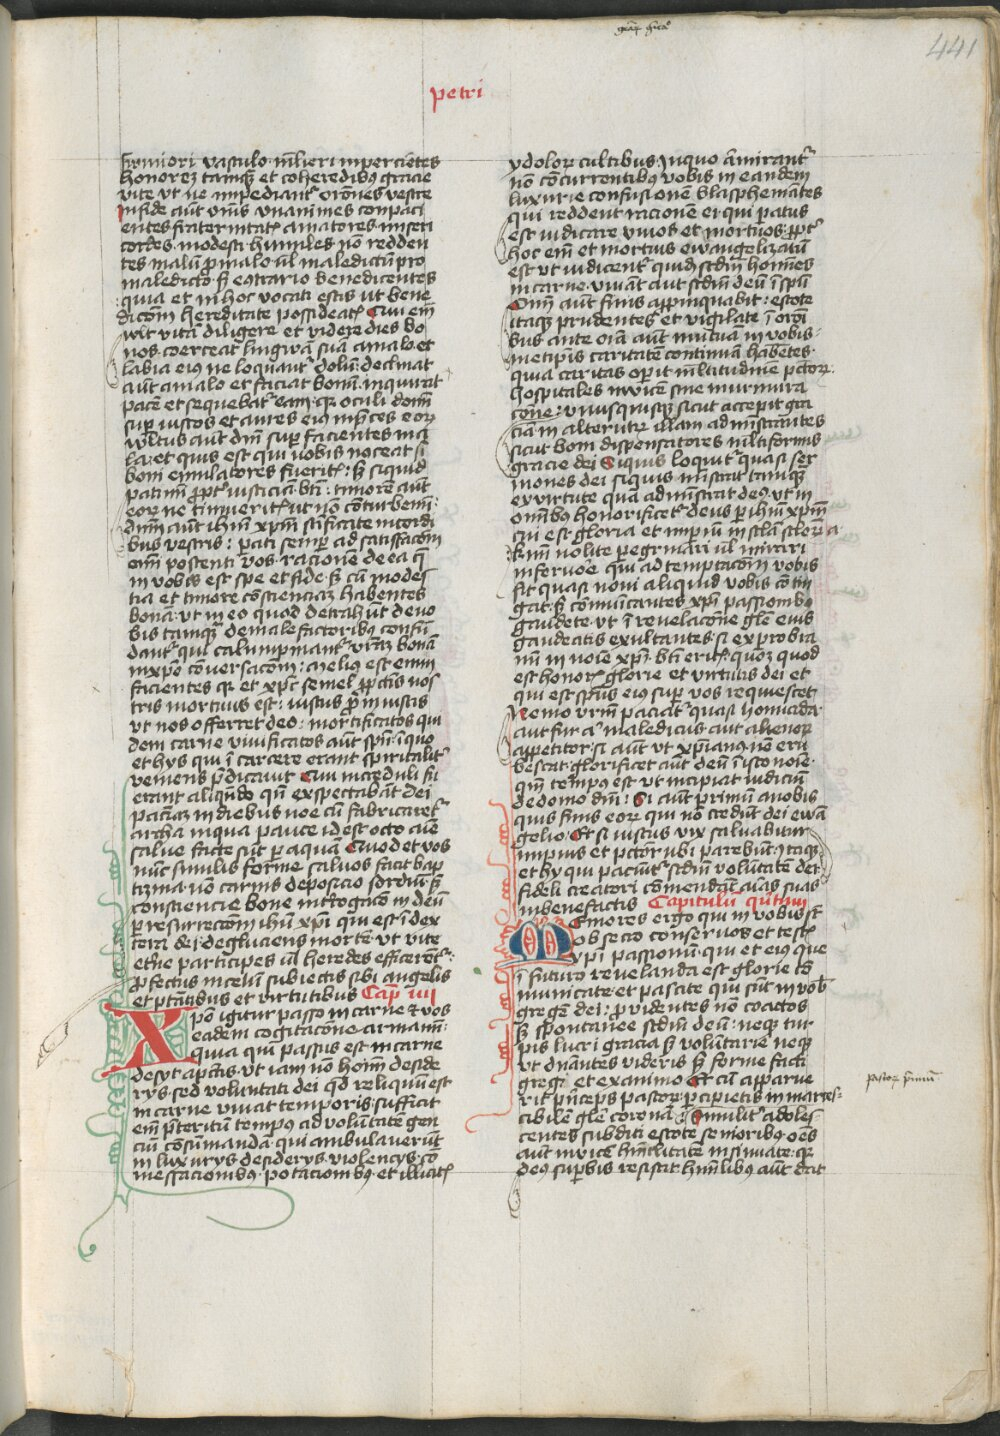 441
petri
firmiori vasculo mlieri impercientes
honorez tamqz et coheredibus gracie
vite vt ne impediantr orones vestre
In fide aut vnis vnanimes compaci
entes fraternitatis amatores miseri
cordes modesti humiles no redden
tes malu p malo ul maledictu pro
maledicto sz econtrario benedicentes
quia et in hoc vocati estis ut bene
dicom hereditate possideatis Qui em
wlt vita diligere et videre dies bo
nos coerceat lingwa sua a malo et
labia eius ne loquantr dolu declinat
aut a malo et faciat bonu inquirat
pace et sequebatr eam qr oculi domi
sup iustos et aures eius in pces eor
wltus aut dni sup facientes ma
la et quis est qui vobis noceat si
boni emulatores fueritis sz si quid
patimi propter iusticia bti timore aut
eor ne timueritis ut no conturbemi
dnm aut ihm xpm scificate in cordi
bus vestris pati semp ad satisfaccom
omi poscenti vos racione de ea q
in vobis est spe et fide sz cu modes
tia et timore conscienciaz habentes
bona vt in eo quod detrahut de vo
bis tamqz de malefactoribus confu
dantr qui calumpniantr vram bona
in xpo conversacom melius est enim
facientes qr et xpc semel p pctis nos
tris mortuus est iustus p iniustis
vt nos offerret deo mortificatos qui
dem carne vivificatos aut spu in quo
et hys qui i carcere erant spiritalitr
veniens pdicavit Qui increduli fu
erant aliqndo qn exspectabat dei
paciaz in diebus noe cu fabricaretr
archa in qua pauce id est octo aie
salve facte sut p aqua Quod et vos
nunc similis forme salvos facit bap
tizma no carnis deposicio sordiu sz
consciencie bone introgaco in deu
p resurreccom ihu xpi qui est i dex
tera dei degluciens morte vt vite
etne participes ul heredes efficeretr
pfectus in celu subiectis sibi angelis
et ptatibus et virtutibus Cap iiii
Xpo igitur passo in carne et vos
eadem cogitacone armami
quia qui passus est in carne
desyt a pctis vt iam no homi deside
rys sed voluntati dei qd reliquu est
in carne vivat temporis sufficit
em pteritu tempus ad volutate gen
ciu cosumanda qui ambulaverut
in luxurys desiderys violencys co
messacionibus potacionibus et illicitis
ydolor cultibus In quo amirantr
no concurrentibus vobis in eandem
luxurie confusione blasphemates
qui reddent racione ei qui paratus
est iudicare vivos et mortuos ppt
hoc em et mortuis ewangelizatu
est vt iudicentr quidz scdm homies
in carne vivat aut scdm deu i spu
Oim aut finis appinquabit estote
itaqz prudentes et vigilate i oroi
bus ante oia aut mutua in vobis
metipis caritate continua habentes
quia caritas operit mltitudine pctor
hospitales invice sine murmura
cone unusquisqz sicut accepit gra
cia in alterutr illam administrantes
sicut boni dispensatores mltiformis
gracie dei Si quis loquitr quasi ser
mones dei si quis mistrat tamqz
ex virtute qua administrat deus ut in
omibus honorificetr deus p ihm xpm
cui est gloria et impiu in scla sclor a
Krmi nolite pegrinari ul mirari
in fervore qui ad temptacom vobis
fit quasi novi aliquid vobis contin
gat sz comunicantes xpi passionibus
gaudete vt i revelacone gle eius
gaudeatis exultantes si exprobra
mi in noie xpi bti eritis quoz quod
est honoris glorie et virtutis dei et
qui est spus eius sup vos requiescet
Nemo vrm paciatr quasi homicida
aut fur aut maledicus aut alienor
appetitor si aut vt xpianus no eru
bescat glorificet aut deu i isto noie
qm tempus est ut incipiat iudiciu
de domo dni Si aut primu a nobis
quis finis eor qui no credut dei ewa
gelio Et si iustus vix salvabitur
impius et pctor ubi parebunt Itaqz
et hy qui paciutr scdm volutate dei
fideli creatori comendant aias suas
in benefactis Capitulu quitum
Seniores ergo qui in vobis st
obsecro conservos et testis
xpi passionu qui et eius que
i futuro revelanda est glorie co
municator et pascite qui sut in vob
grege dei pvidentes no coactos
sz spontanee scdm deu neqz tur
pis lucri gracia sz voluntarie neqz
vt dnantes videris sz forme facti
gregi et ex animo Et cu apparue
rit pnceps pastor pcipietis in marces
cibilem gle corona Similitr adoles
centes subditi estote senioribus oes
aut invice humilitate insinuate qr
deus supbis resistit humilibus aut dat